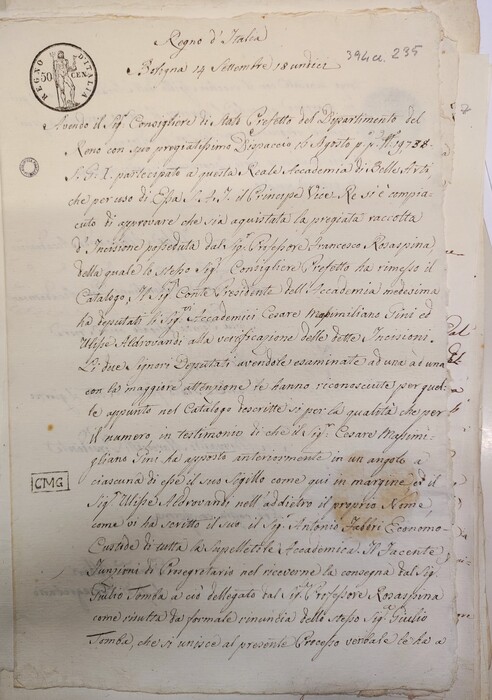 Regno d'Italia
394 cu. 295
REGNO D'ITALIA
50 CEN.
Bologna 14 Settembre 18undici
Avendo il Sig.r Consigliere di Stato Prefetto del Dipartimento del
Reno con suo pregiatissimo Dispaccio 16 Agosto p.o p.o N.o 19738
partecipato a questa Reale Accademia di Belle Arti
che per uso di Essa S.A.I. il Principe Vice Re si è compia=
ciuto di approvare che sia aquistata la pregiata raccolta
d'Incisione posseduta dal Sig.r Professore Francesco Rosaspina
della quale lo stesso Sig.r Consigliere Prefetto ha rimesso il
Catalogo, Il Sig.r Conte Presidente dell'Accademia medesima
ha deputati li Sig.ri Accademici Cesare Massimiliano Gini ed
Ulisse Aldrovandi alla verificazione delle dette Incisioni.
Li due Signori Deputati avendole esaminate ad una ad una
con la maggiore attenzione le hanno riconosciute per quel=
le appunto nel Catalogo descritte sì per la qualità che per
il numero, in testimonio di che il Sig.r Cesare Massimi=
gliano Gini ha apposto anteriormente in un angolo a
ciascuna di esse il suo Sigillo come qui in margine ed il
CMG
Sig.r Ulisse Aldrovandi nell'addietro il proprio Nome,
come vi ha scritto il suo il Sig.r Antonio Fabbri Economo=
Custode di tutta la Supelletile Accademica. Il facente
funzioni di Prosegretario nel riceverne la consegna dal Sig.r
Giulio Tomba a ciò dellegato dal Sig.r Professore Rosaspina
come risulta da formale rinunzia dello stesso Sig.r Giulio
Tomba, che si unisce al presente Processo verbale le ha a